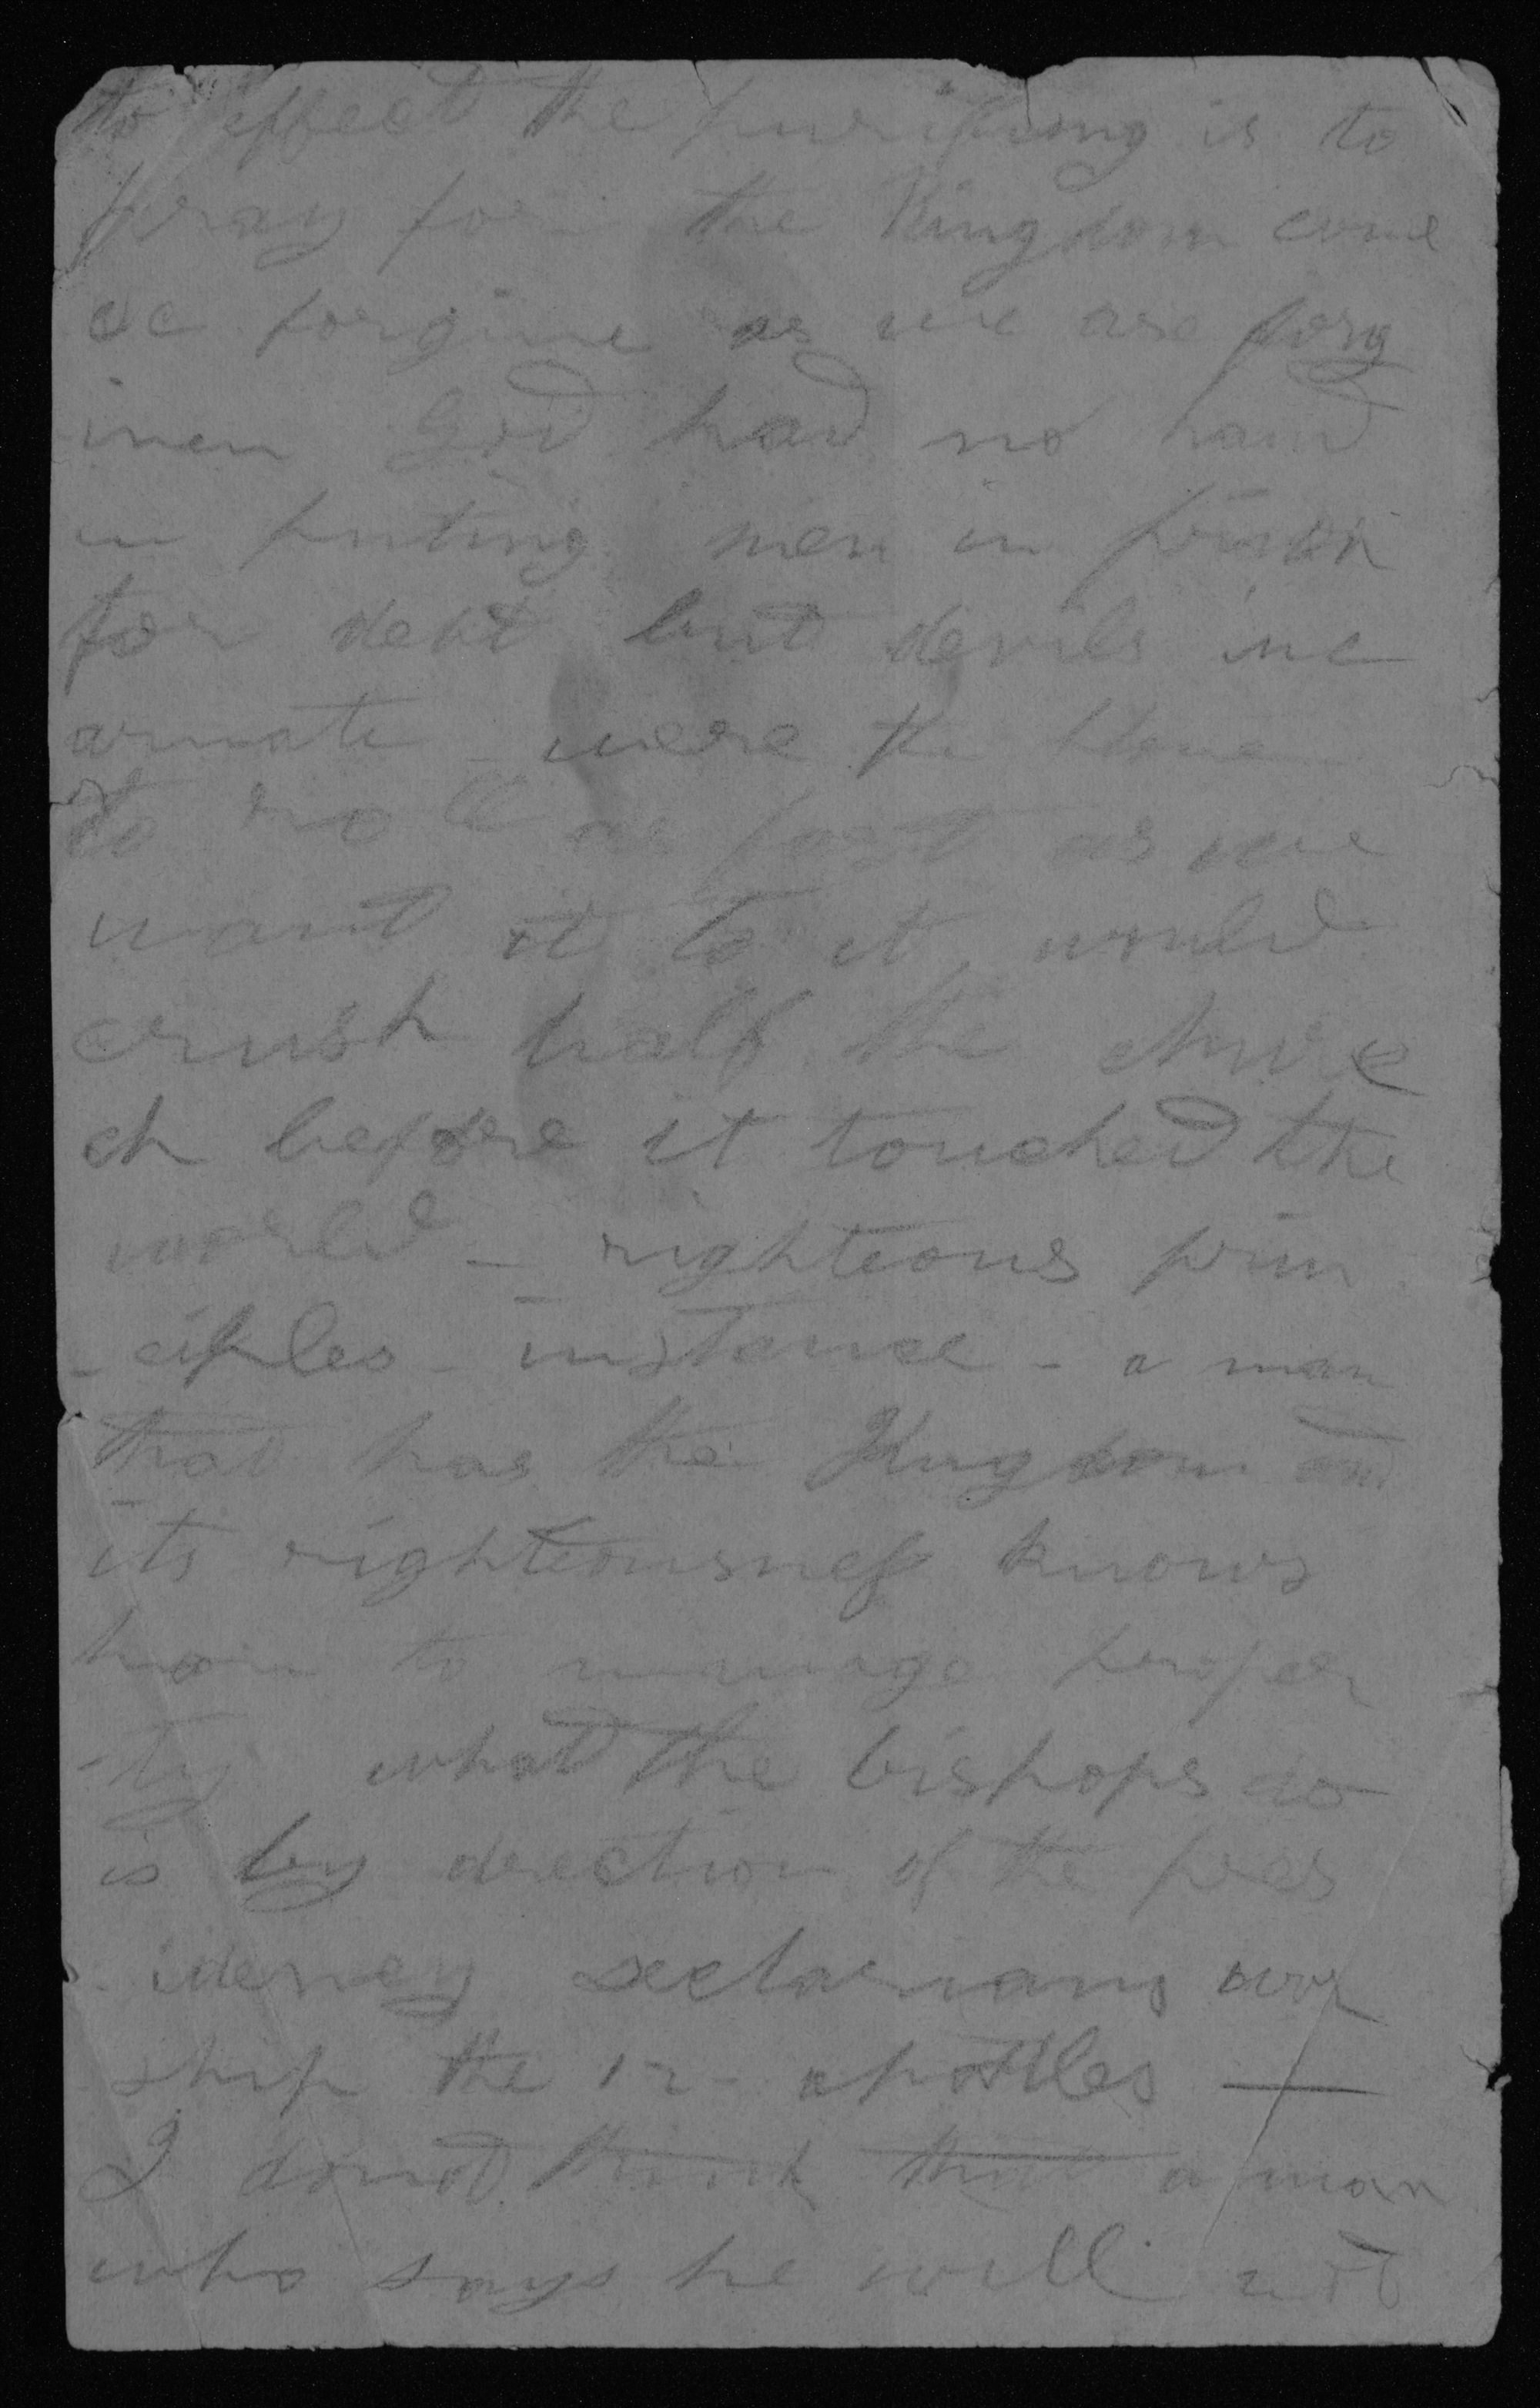 to effect the purifiung is to
pray for the Kingdom come
&c forgive as we are forg
iven God had no hand
in puting men in prison
for debt but devils inc
arnate were the stone
to roll as fast as we
want it to it would
crush half the churc
ch before it touched the
world - righteous prin
- ciples - instance - a man
that has the Kingdom and
its righteousness knows
how to manage proper
-ty what the bishops do
is by direction of the pres
idency sectarians wor
ship the 12 apostles —
I donot think that a man
who says he will not